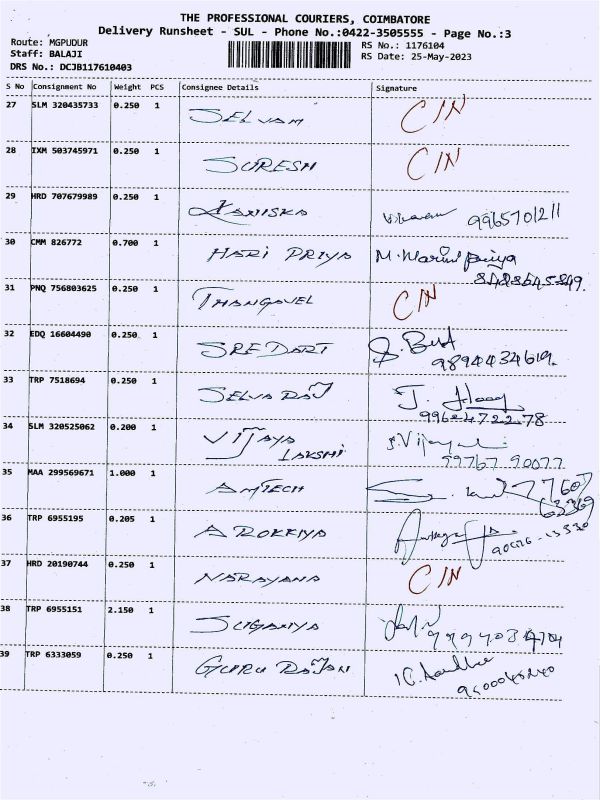 THE PROFESSIONAL COURIERS, COIMBATORE
Delivery Runsheet - SUL - Phone No.:0422-3505555 - Page No.:3
Route: MGPUDUR RS No.: 1176104
Staff: BALAJI RS Date: 25-May-2023
DRS No.: DCJB117610403
S No Consignment No Weight PCS Consignee Details Signature
27 SLM 320435733 0.250 1 SELVAM C/N
28 IXM 503745971 0.250 1 SURESH C/N
29 HRD 707679989 0.250 1 KANISKA 9965701211
30 CMM 826772 0.700 1 HARI PRIYA M.
31 PNQ 756803625 0.250 1 THANGAVEL C/N
32 EDQ 16604490 0.250 1 SREE DART
9894434619.
33 TRP 7518694 0.250 1 SELVA RAJ J.
34 SLM 320525062 0.200 1 VIJAYA
LAKSHI 59767 90077
35 MAA 299569671 1.000 1 AMTECH
36 TRP 6955195 0.205 1 AROKKIYA
37 HRD 20190744 0.250 1 NARAYANA C/N
38 TRP 6955151 2.150 1 SUGANYA
39 TRP 6333059 0.250 1 GURU RAJAN